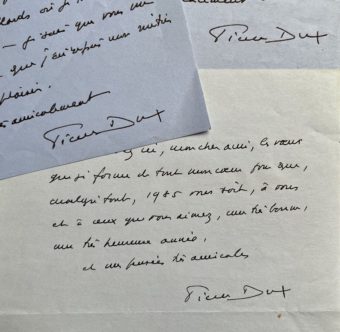 je sais que vous
que j'ai
plaisir.
amicalement
Pierre Dux
Pierre Dux
ici, mon cher ami, les vœux
que je forme de tout mon cœur pour que,
malgré tout, 1985 vous soit, à vous
et à ceux que vous aimez, une très bonne,
une très heureuse année,
et mes pensées très amicales
Pierre Dux